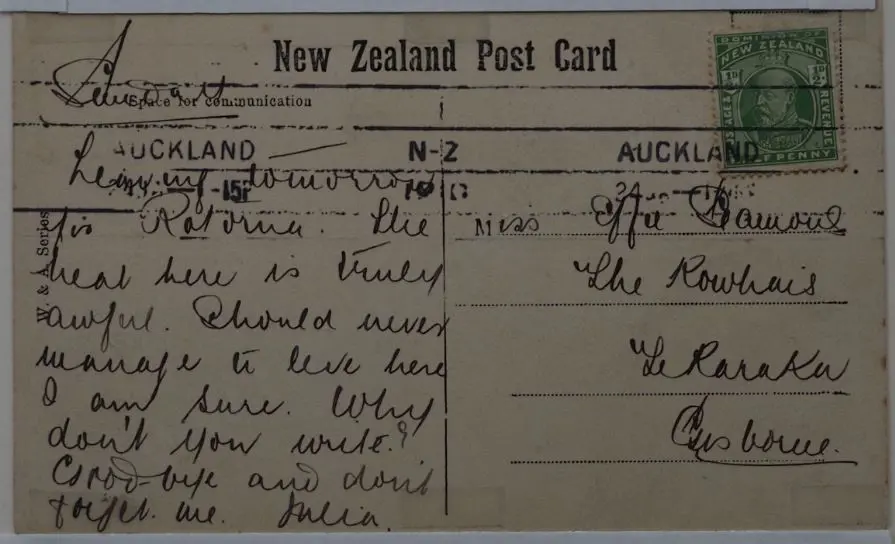 New Zealand Post Card
Sunday
Space for communication
DOMINION OF
NEW ZEALAND
½D ½D
POSTAGE & REVENUE
HALF PENNY
AUCKLAND N-Z AUCKLAND
Leaving tomorrow
for Rotorua. The
heat here is truly
awful. Should never
manage to live here
I am sure. Why
don't you write?
Good-bye and don't
forget me. Julia.
W. & A. Series
Miss Effa
The Kowhais
Te Karaka
Gisborne.